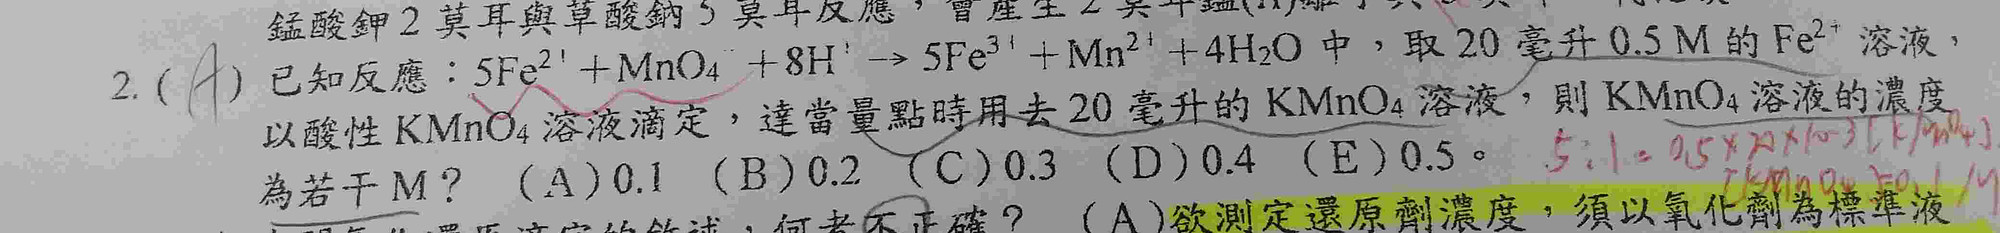 錳酸鉀2莫耳與草酸鈉5莫耳反應，會產生2莫耳錳(II)離子與
2.(A)已知反應：5Fe²⁺+MnO₄⁻+8H⁺→5Fe³⁺+Mn²⁺+4H₂O中，取20毫升0.5 M的Fe²⁺溶液，
以酸性KMnO₄溶液滴定，達當量點時用去20毫升的KMnO₄溶液，則KMnO₄溶液的濃度
為若干M？ (A)0.1 (B)0.2 (C)0.3 (D)0.4 (E)0.5。
5:1=0.5×20×10⁻³[KMnO₄]
[KMnO₄]=0.1M
何者不正確？ (A)欲測定還原劑濃度，須以氧化劑為標準液